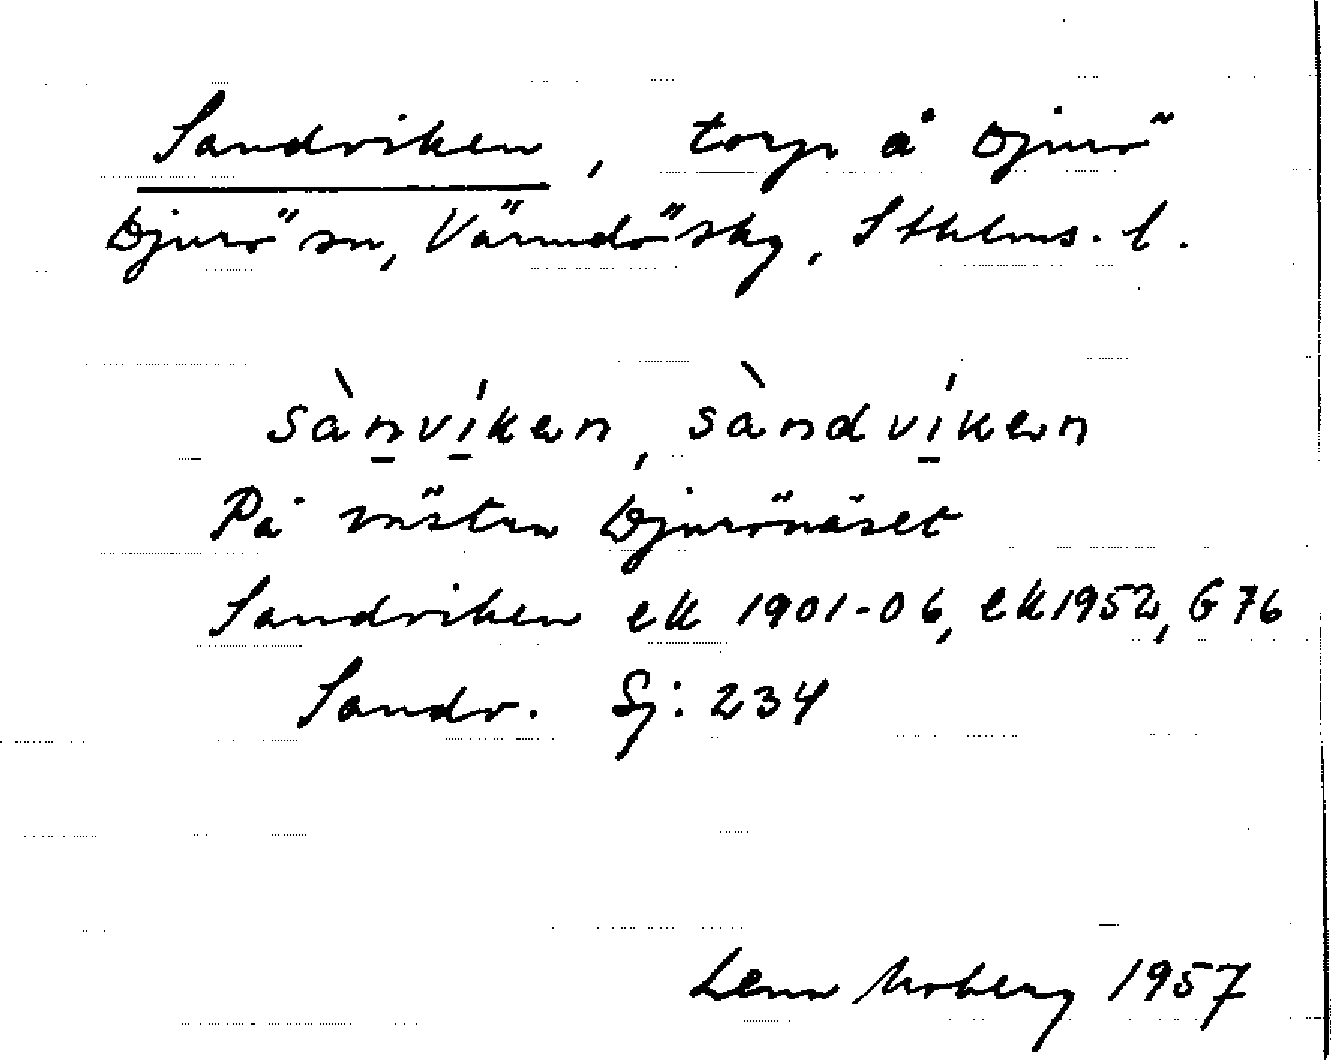 Sandviken, torp å Djurö
Djurö sn, Värmdö skg, Sthlms. l.
sànvíken, sàndvíken
På västra Djurönäset
Sandviken ek 1901-06, ek 1952, G 76
Sandv. Sj: 234
Lena Moberg 1957